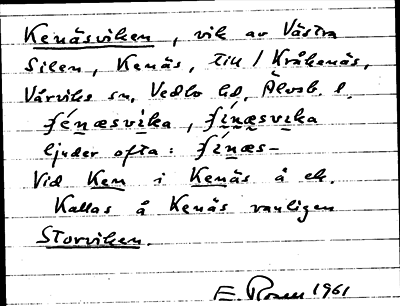 Kenäsviken, vik av Västra
Silen, Kenäs, till / Kråkenäs,
Vårviks sn, Vedbo hd, Älvsb. l.
fénæsvika, fínæsvika
ljuder ofta: fínæs-
Vid Ken i Kenäs å ek.
Kallas å Kenäs vanligen
Storviken.
E. Rosen 1961